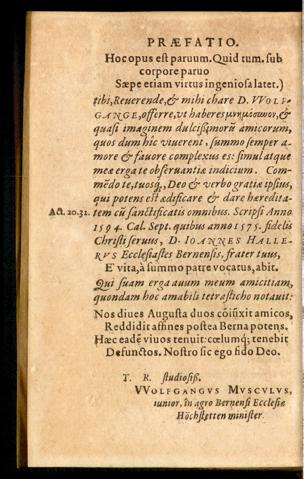 PRÆFATIO.
Hoc opus est paruum. Quid tum. sub
corpore paruo
Sæpe etiam virtus ingeniosa latet.)
tibi, Reuerende, & mihi chare D. VVOLF-
GANGE, offerre, vt haberes μνημόσυνον, &
quasi imaginem dulcissimorū amicorum,
quos dum hic viuerent, summo semper a-
more & fauore complexus es: simulatque
meæ erga te obseruantiæ indicium. Com-
mēdo te, tuosq́, Deo & verbo gratiæ ipsius,
qui potens est ædificare & dare hæredita-
Act. 20.31. tem cū sanctificatis omnibus. Scripsi Anno
1594. Cal. Sept. quibus anno 1575. fidelis
Christi seruus, D. IOANNES HALLE-
RVS Ecclesiastes Bernensis, frater tuus,
E vita, à summo patre vocatus, abit.
Qui suam erga auum meum amicitiam,
quondam hoc amabili tetrasticho notauit:
Nos diues Augusta duos cōiūxit amicos,
Reddidit affines postea Berna potens.
Hæc eadē viuos tenuit: cœlumq́; tenebit
Defunctos. Nostro sic ego fido Deo.
T. R. studiosiss.
VVOLFGANGVS MVSCVLVS,
iunior, in agro Bernensi Ecclesiæ
Höchstetten minister.